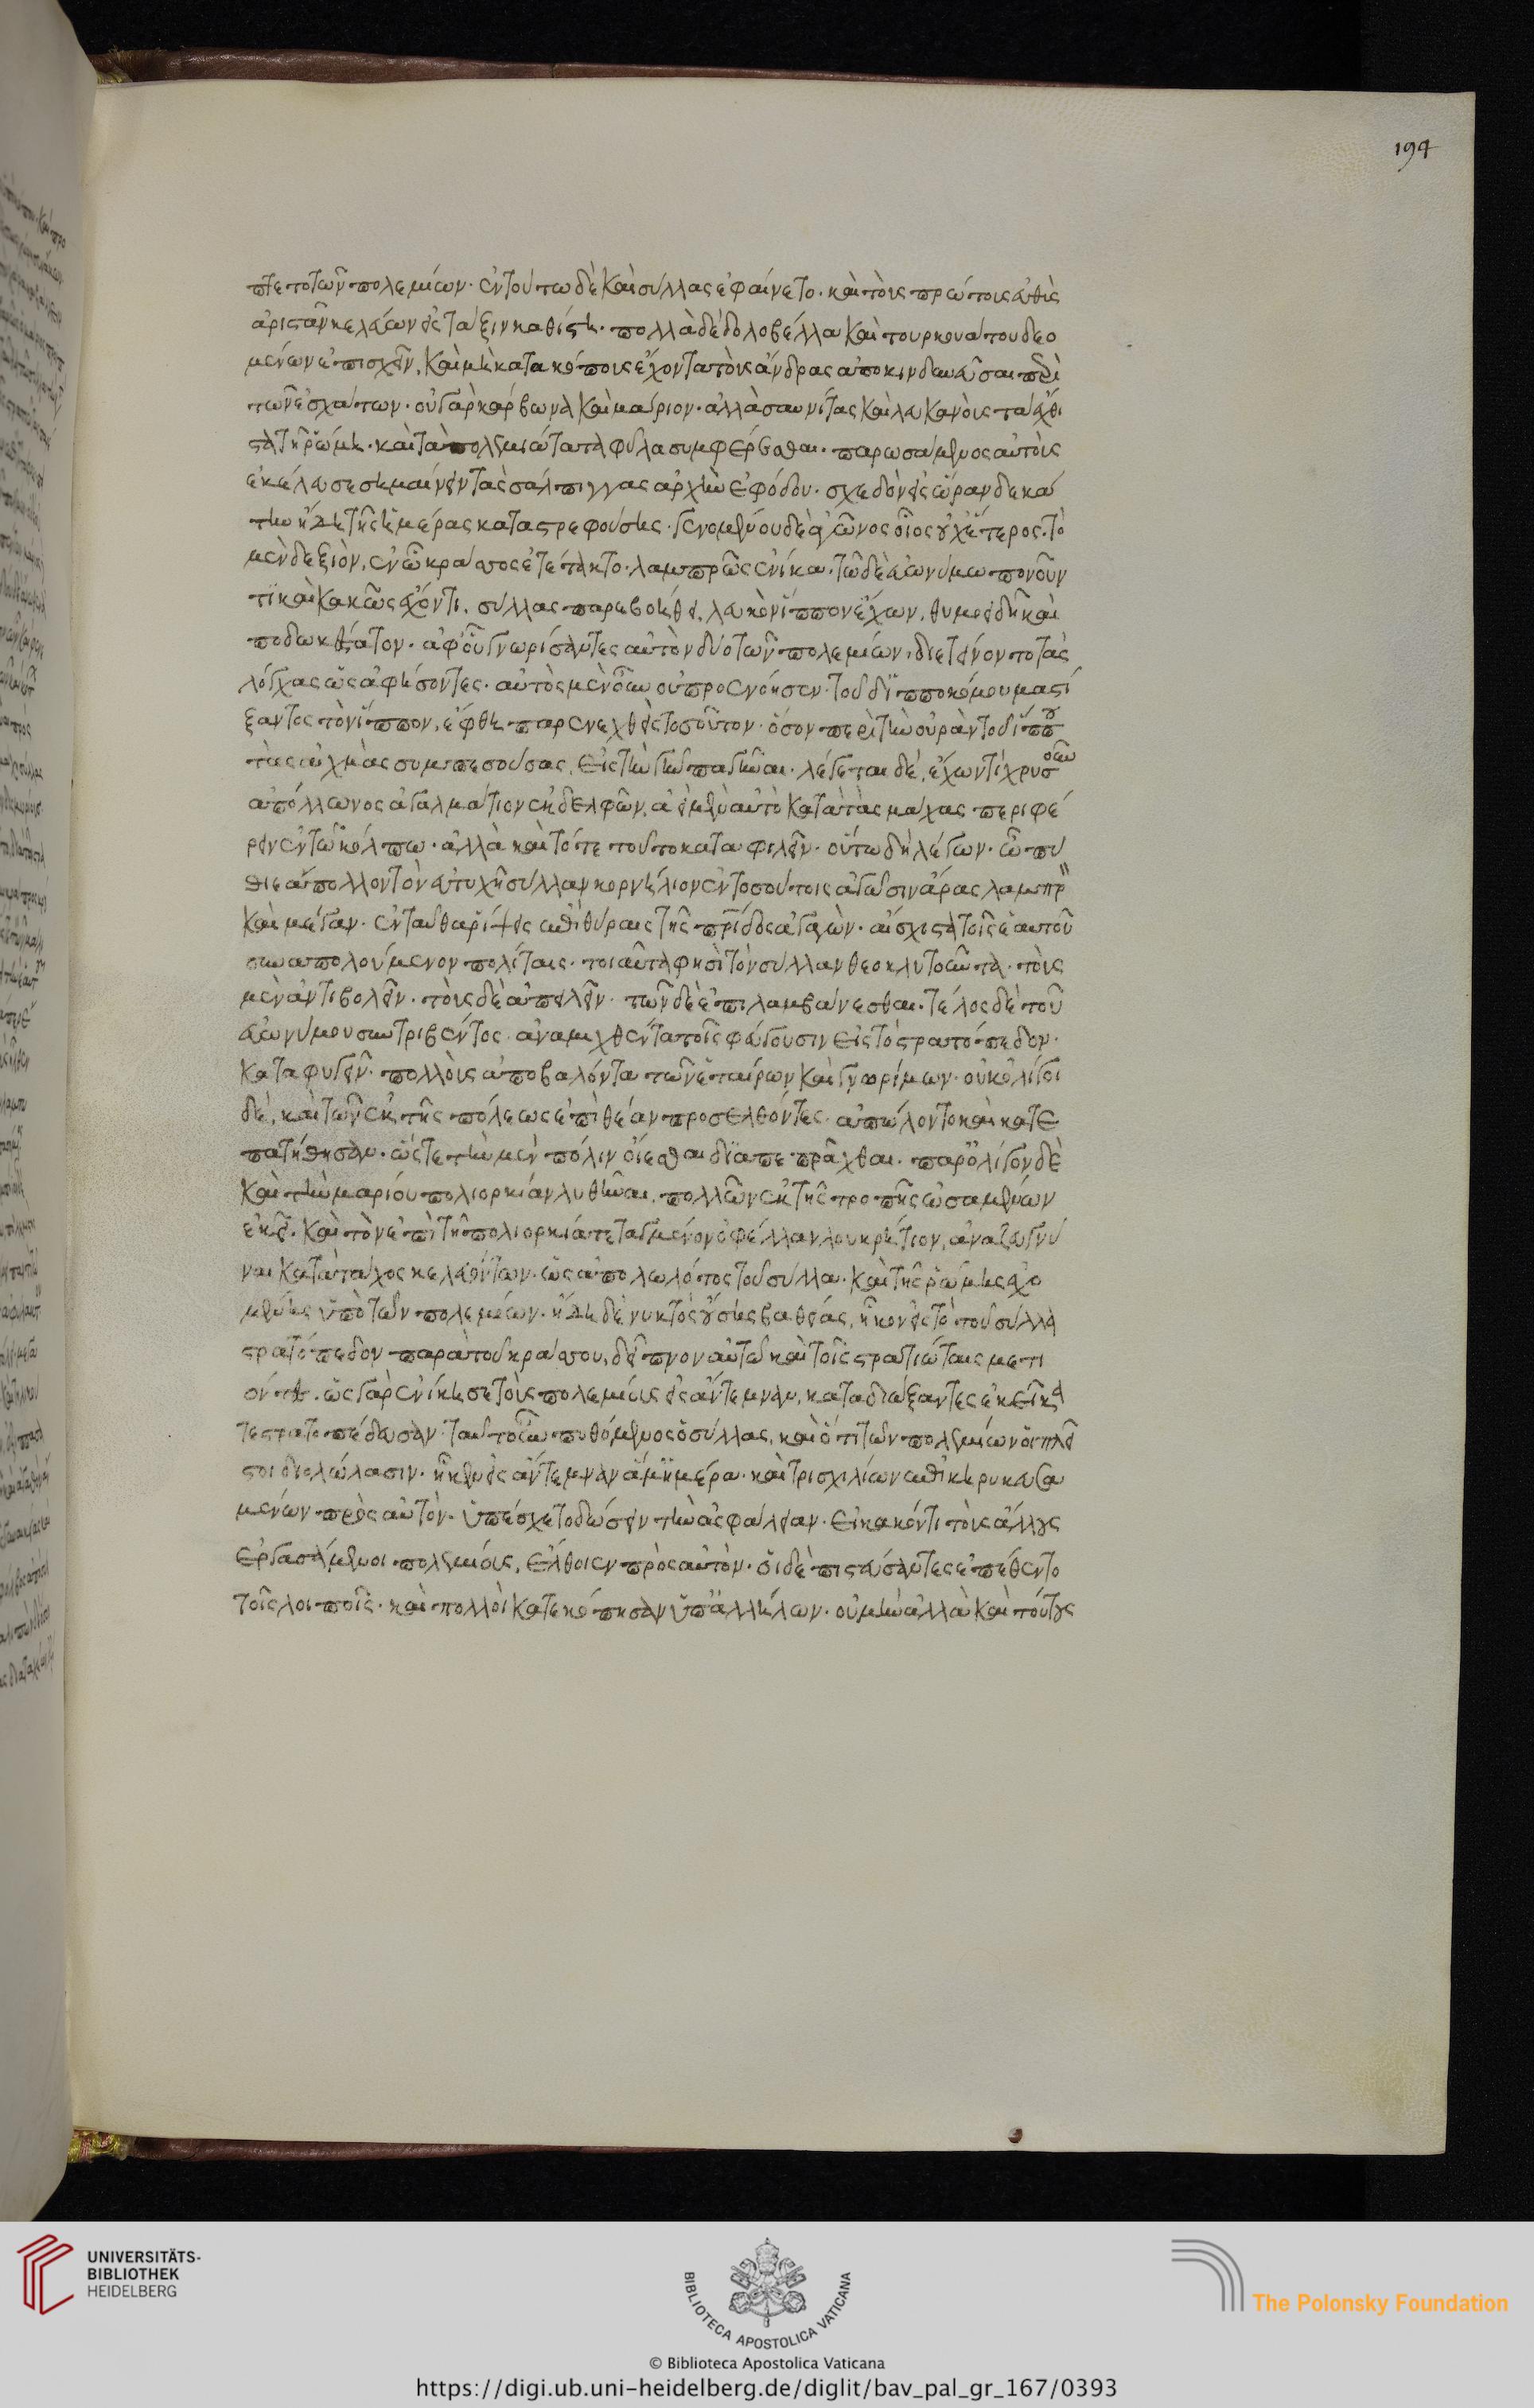 194
πτετο τῶν πολεμίων. ἐν τούτω δὲ καὶ σύλλας ἐφαίνετο. καὶ τοὺς πρώτους εὐθὺς
ἀριστᾶν κελεύων εἰς τάξιν καθίστη. πολλὰ δὲ δολοβέλλα καὶ τουρκουάτου δεο
μένων ἐπισχεῖν, καὶ μὴ κατακόπους ἔχοντα τοὺς ἄνδρας ἀποκινδυνεῦσαι περὶ
τῶν ἐσχάτων. οὐ γὰρ κάρβωνα καὶ μάριον. ἀλλὰ σαυνίτας καὶ λευκανοὺς τὰ ἔχθι
στα τῆ ῥώμη. καὶ τὰ πολεμιώτατα φῦλα συμφέρεσθαι. παρωσάμενος αὐτοὺς
ἐκέλευσε σημαίνειν τὰς σάλπιγγας ἀρχὴν ἐφόδου. σχεδὸν εἰς ὥραν δεκά
την ἤδη τῆς ἡμέρας καταστρεφούσης. γενομένου δὲ ἀγῶνος οἷος οὐχ ἕτερος. τὸ
μὲν δεξιὸν, ἐν ᾧ κράσσος ἐτέτακτο. λαμπρῶς ἐνίκα. τῶ δὲ εὐωνύμω πονοῦν
τι καὶ κακῶς ἔχοντι. σύλλας παρεβοήθει. λευκὸν ἵππον ἔχων, θυμοειδῆ καὶ
ποδωκέστατον. ἀφ' οὗ γνωρίσαντες αὐτὸν δύο τῶν πολεμίων, διετείνοντο τὰς
λόγχας ὡς ἀφήσοντες. αὐτὸς μὲν οὖν οὐ προενόησεν. τοῦ δ' ἱπποκόμου μαστί
ξαντος τὸν ἵππον, ἔφθη παρενεχθεὶς τοσοῦτον. ὅσον περὶ τὴν οὐρὰν τοῦ ἵππου
τὰς αἰχμὰς συμπεσούσας, εἰς τὴν γῆν παγῆναι. λέγεται δέ, ἔχων τι χρυσοῦν
ἀπόλλωνος ἀγαλμάτιον ἐκ δελφῶν, ἀεὶ μὲν αὐτὸ κατὰ τὰς μάχας περιφέ
ρειν ἐν τῶ κόλπω. ἀλλὰ καὶ τότε τοῦτο καταφιλεῖν. οὕτω δὴ λέγων. ὦ πύ
θιε ἄπολλον τὸν εὐτυχῆ σύλλαν κορνήλιον ἐν τοσούτοις ἀγῶσιν ἄρας λαμπρὸν
καὶ μέγαν. ἐνταῦθα ῥίψεις ἐπὶ θύραις τῆς πρίδος ἀγαγὼν. αἴσχιστα τοῖς ἑαυτοῦ
συναπολούμενον πολίταις. τοιαῦτά φησι τὸν σύλλαν θεοκλυτοῦντα. τοὺς
μὲν ἀντιβολεῖν. τοὺς δὲ ἀπειλεῖν. τῶν δὲ ἐπιλαμβάνεσθαι. τέλος δὲ τοῦ
εὐωνύμου συντριβέντος. ἀναμιχθέντα τοῖς φεύγουσιν εἰς τὸ στρατόπεδον.
καταφυγεῖν. πολλοὺς ἀποβαλόντα τῶν ἑταίρων καὶ γνωρίμων. οὐκ ὀλίγοι
δέ, καὶ τῶν ἐκ τῆς πόλεως ἐπὶ θέαν προσελθόντες. ἀπώλοντο καὶ κατε
πατήθησαν. ὥστε τὴν μὲν πόλιν οἴεσθαι διαπεπρᾶχθαι. παρ' ὀλίγον δὲ
καὶ τὴν μαρίου πολιορκίαν λυθῆναι, πολλῶν ἐκ τῆς τροπῆς ὠσαμένων
ἐκεῖ. καὶ τὸν ἐπὶ τῆ πολιορκία τεταγμένον ὀφέλλαν λουκρήτιον, ἀναζευγνύ
ναι κατὰ τάχος κελευόντων. ὡς ἀπολωλότος τοῦ σύλλα. καὶ τῆς ῥώμης ἐχο
μένης ὑπὸ τῶν πολεμίων. ἤδη δὲ νυκτὸς οὔσης βαθείας, ἧκον εἰς τὸ τοῦ σύλλα
στρατόπεδον παρὰ τοῦ κράσσου, δεῖπνον αὐτῶ καὶ τοῖς στρατιώταις μετι
όντες. ὡς γὰρ ἐνίκησε τοὺς πολεμίους εἰς ἄντεμναν, καταδιώξαντες ἐκεῖ κα
τεστρατοπέδευσαν. ταῦτ' οὖν πυθόμενος ὁ σύλλας, καὶ ὅτι τῶν πολεμίων οἱ πλεῖ
στοι διολώλασιν. ἧκεν εἰς ἄντεμναν ἅμ' ἡμέρα. καὶ τρισχιλίων ἐπικηρυκευσα
μένων πρὸς αὐτὸν. ὑπέσχετο δώσειν τὴν ἀσφάλειαν. εἰ κακόν τι τοὺς ἄλλους
ἐργασάμενοι πολεμίους, ἔλθοιεν πρὸς αὐτὸν. οἱ δὲ πιστεύσαντες ἐπέθεντο
τοῖς λοιποῖς. καὶ πολλοὶ κατεκόπησαν ὑπ' ἀλλήλων. οὐ μὴν ἀλλὰ καὶ τούτους
UNIVERSITÄTS-
BIBLIOTHEK
HEIDELBERG
BIBLIOTECA APOSTOLICA VATICANA
The Polonsky Foundation
© Biblioteca Apostolica Vaticana
https://digi.ub.uni-heidelberg.de/diglit/bav_pal_gr_167/0393